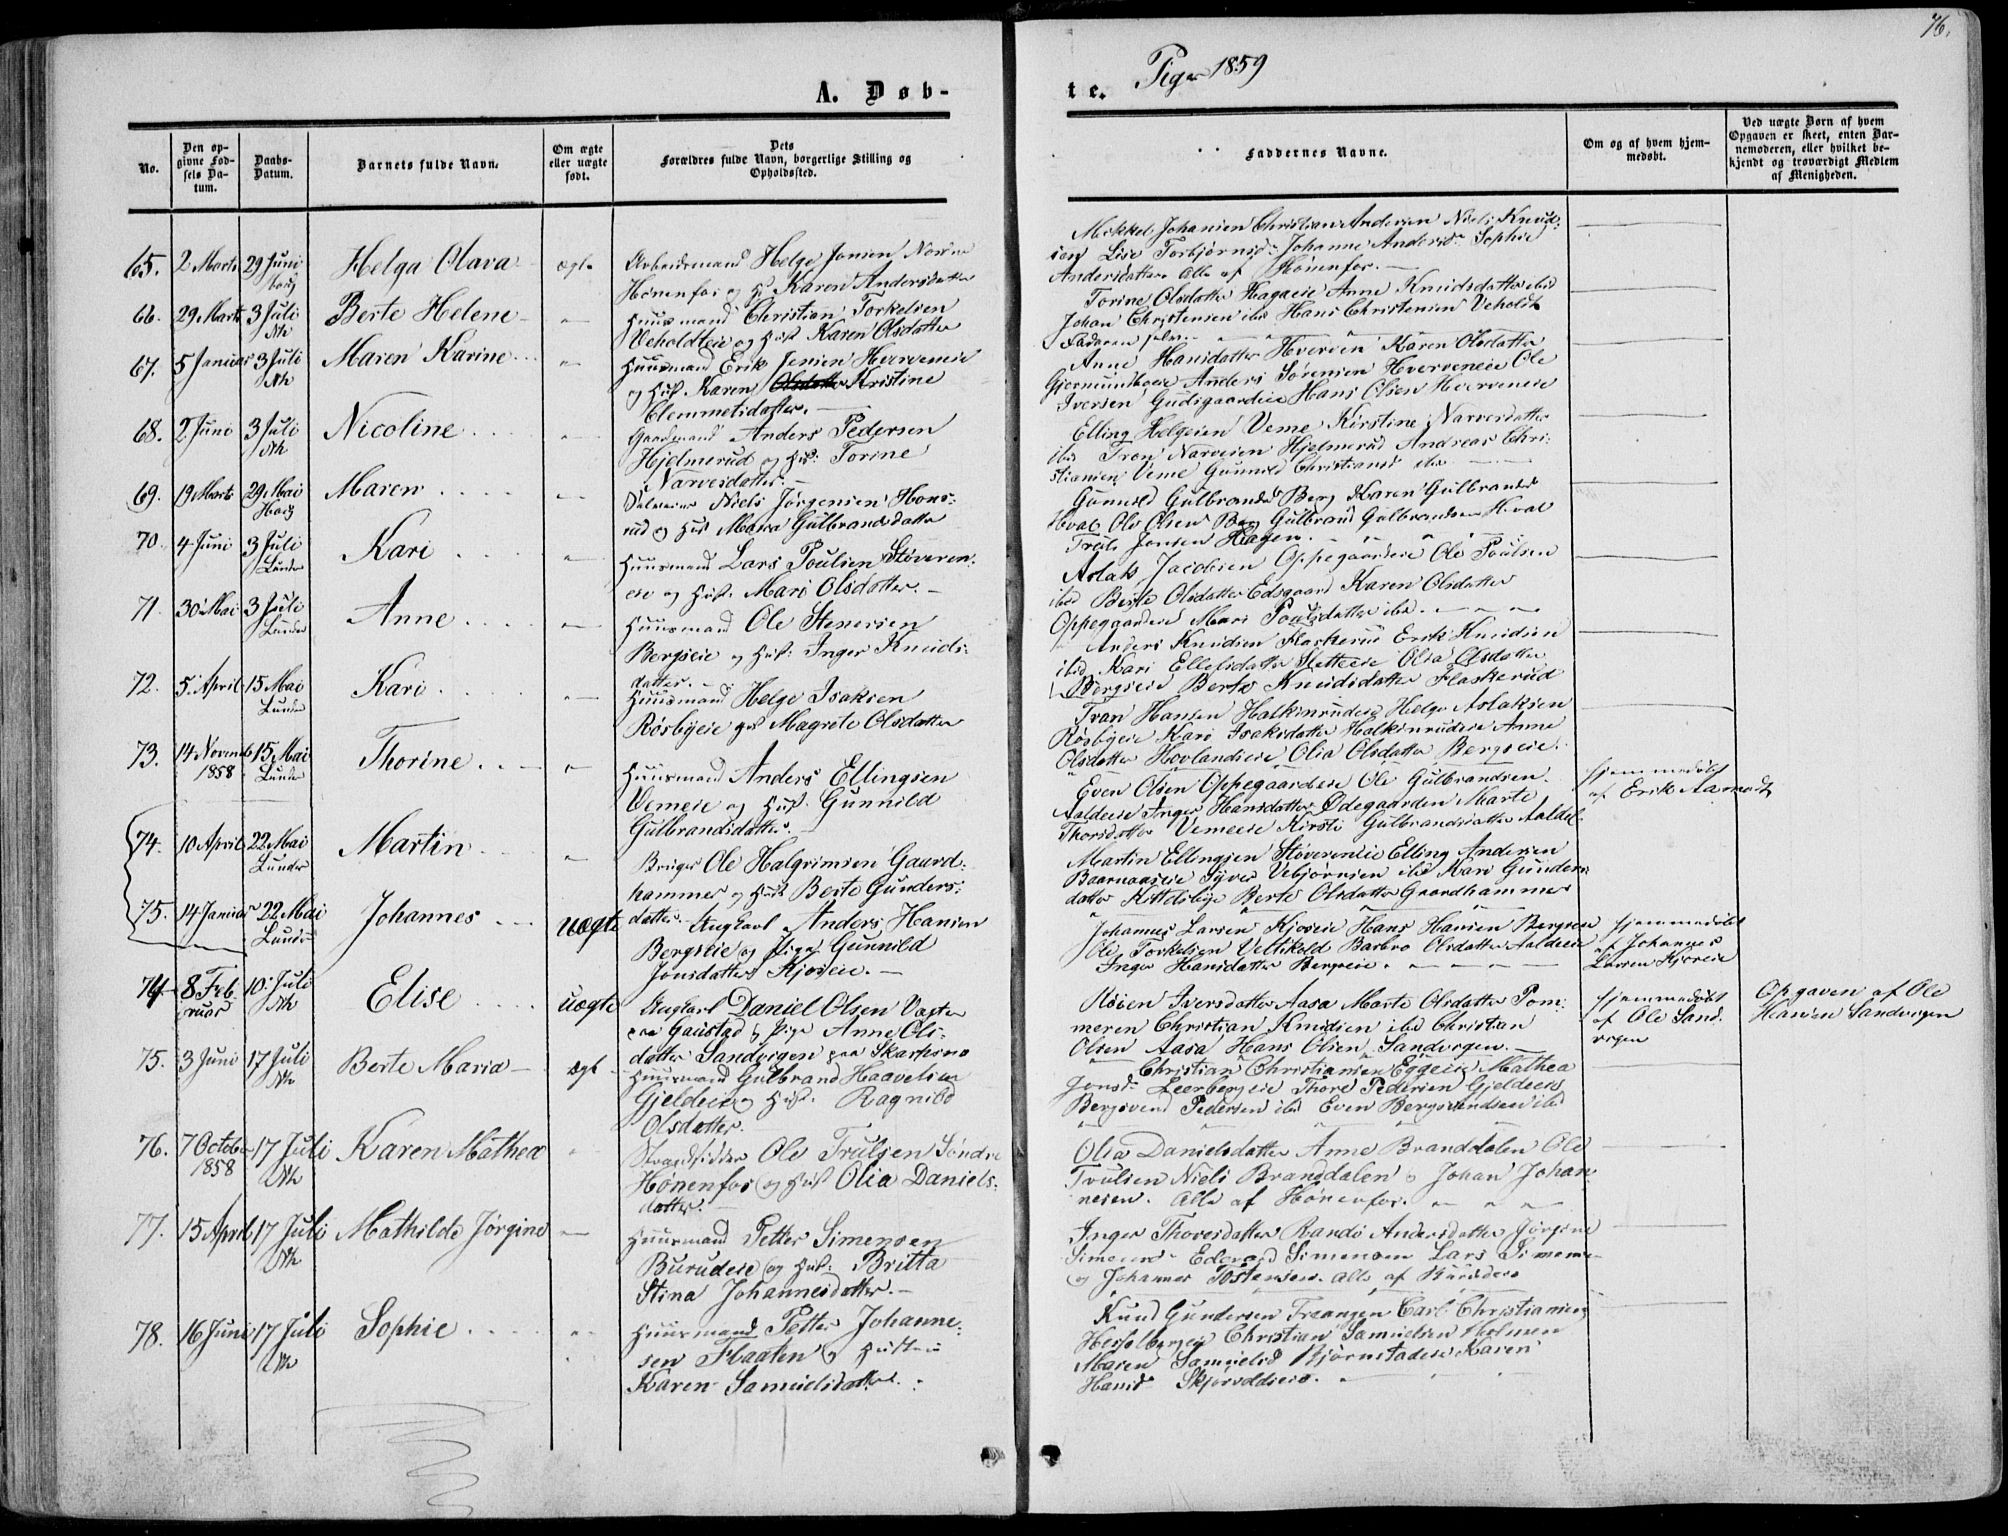 76.
A. Døb-
te. Piger 1859
No.
Den op-
givne Fød-
sels Da-
tum.
Daabs-
Datum.
Barnets fulde Navn.
Om ægte
eller uægte
født.
Dets
Forældres fulde Navn, borgerlige Stilling og
Opholdssted.
Faddernes Navne.
Om og af hvem hjem-
medøbt.
Ved uægte Børn af hvem
Opgaven er skeet, enten Bar-
nemoderen, eller hvilket be-
kjendt og troværdigt Medlem
af Menigheden.
65. 2 Marts 29 Juni Helga Olava ægte
Arbeidsmand Helge Jonsen Nordre
Hönenfos og H. Karen Andersdatter
Mikkel Johansen Christian Andersen Niels Knud-
sen Lise Torbjørnsd. Johanne Andersd. Sophie
Andersdatter Alle af Hönenfos.
66. 29 Marts 3 Juli Nh Berte Helene
Huusmand Christian Torkelsen
Veholdteie og Hust Karen Olsdatter
Torine Olsdatter Hagaeie Anne Knudsdatter ibd
Johan Christensen ibd Hans Christensen Veholdt
Faderen selv.
67. 5 Januar 3 Juli Nh Maren Karine
Huusmand Erik Jensen Hverveneie
og Hust. Karen Olsdatter Kristine
Clemmetsdatter.
Anne Hansdatter Hverven Karen Olsdatter
Gjermundboeie Anders Sørensen Hverveneie Ole
Iversen Gudsgaardeie Hans Olsen Hverveneie
68. 2 Juni 3 Juli Nh Nicoline
Gaardmand Anders Pedersen
Hjelmerud og Hust: Torine
Narvesdatter.
Elling Helgesen Veme Kirstine Narvesdatter
ibd Tron Narvesen Hjelmerud Andreas Chri-
stiansen Veme Gunnild Christiansd ibd
69. 19 Marts 29 Mai Haug Maren
Selveier Niels Jørgensen Hons-
rud og Hust Maria Gulbrandsdatter
Gunild Gulbrandsd Berg Karen Gulbrandsd
Hval Ole Olsen Berg Gulbrand Gulbrandsen Hval
Truls Jonsen Hagen.
70. 4 Juni 3 Juli Lunder Kari
Huusmand Lars Poulsen Støveren-
eie og Hust. Mari Olsdatter.
Aslak Jacobsen Oppegaardeie Ole Poulsen
ibid Berte Olsdatter Edsgaard Karen Olsdatter
Oppegaardeie Mari Poulsdatter ibd.
71. 30 Mai 3 Juli Lunder Anne
Huusmand Ole Stenersen
Bergseie og Hust: Inger Knuds-
datter.
Anders Knudsen Flaskerud Erik Knudsen
ibid Kari Ellefsdatter Sletteeie Olia Olsdatter
Bergseie Berte Knudsdatter Flaskerud
72. 5 April 15 Mai Lunder Kari
Huusmand Helge Isaksen
Røsbyeie og H Magrete Olsdatter
Tran Hansen Halkinrudeie Helge Aslaksen
Røsbyeie Kari Isaksdatter Halkinrudeie Anne
Olsdatter Hovlandseie Olia Olsdatter Bergseie.
73. 14 Novemb 1858 15 Mai Lunder Thorine
Huusmand Anders Ellingsen
Vemeeie og Hust. Gunnild
Gulbrandsdatter.
Even Olsen Oppegaardeie Ole Gulbrandsen
Aaldeie Inger Hansdatter Ødegaarden Marte
Thorsdatter Vemeeie Kirsti Gulbrandsdatter Aaldei
Hjemmedøbt
af Erik Aamodt
74. 10 April 22 Mai Lunder Martin
Bruger Ole Halgrimsen Gaard-
hammer og Hust Berte Gunders-
datter.
Martin Ellingsen Støvereneie Elling Andersen
Baarnaaseie Syver Vebjørnsen ibd Kari Gunders-
datter Kittelsbye Berte Olsdatter Gaardhammer
75. 14 Januar 22 Mai Lunder Johannes uægte
Ungkarl Anders Hansen
Bergseie og Pige Gunnild
Jonsdatter Kjoseie.
Johannes Larsen Kjoseie Hans Hansen Bergseie
Ole Torkelsen Veltikold Barbro Olsdatter Aaldeie
Inger Hansdatter Bergseie.
Hjemmedøbt
af Johannes
Larsen Kjoseie
74. 8 Feb
ruar 10 Juli Nh Elise uægte
Ungkarl Daniel Olsen Vogter
paa Gaustad og Pige Anne Ols-
datter Sandvigen paa Skarfsno
Röien Iversdatter Aasa Marte Olsdatter Pom-
meren Christian Knudsen ibd Christian
Olsen Aasa Hans Olsen Sandvigen.
Hjemmedøbt
af Ole Sand-
vigen
Opgaven af Ole
Hansen Sandvigen
75. 3 Juni 17 Juli Nh Berte Maria ægte
Huusmand Gulbrand Haavelsen
Gjeldeie og Hust. Ragnild
Olsdatter.
Christian Christiansen Eggeeie Mathea
Jonsd. Leerbergeie Thore Pedersen Gjeldeeie
Bergsvend Pedersen ibd Even Bergsvendsen ibd
76. 7 October 1858 17 Juli Nh Karen Mathea
Strandsidder Ole Trulsen Söndre
Hönenfos og Hust Olia Daniels-
datter.
Olia Danielsdatter Anne Branddalen Ole
Trulsen Niels Branddalen og Johan Johan-
nesen. Alle af Hönenfos.
77. 15 April 17 Juli Nh Mathilde Jørgine
Huusmand Petter Simensen
Burudeie og Hust. Britta
Stina Johannesdatter.
Inger Thoresdatter Randi Andersdatter Jörgine
Simensd. Edvard Simensen Lars Simensen
og Johannes Tostensen. Alle af
78. 16 Juni 17 Juli Nh Sophie
Huusmand Petter Johanne-
sen Flaaten og Hustru
Karen Samuelsdatter.
Knud Gundersen Traangen Carl Christiansen
Hesselbergeie Christian Samuelsen Holmen
Maren Samuelsd Bjørnstadeie Karen
Hansd Skjørvoldseie.